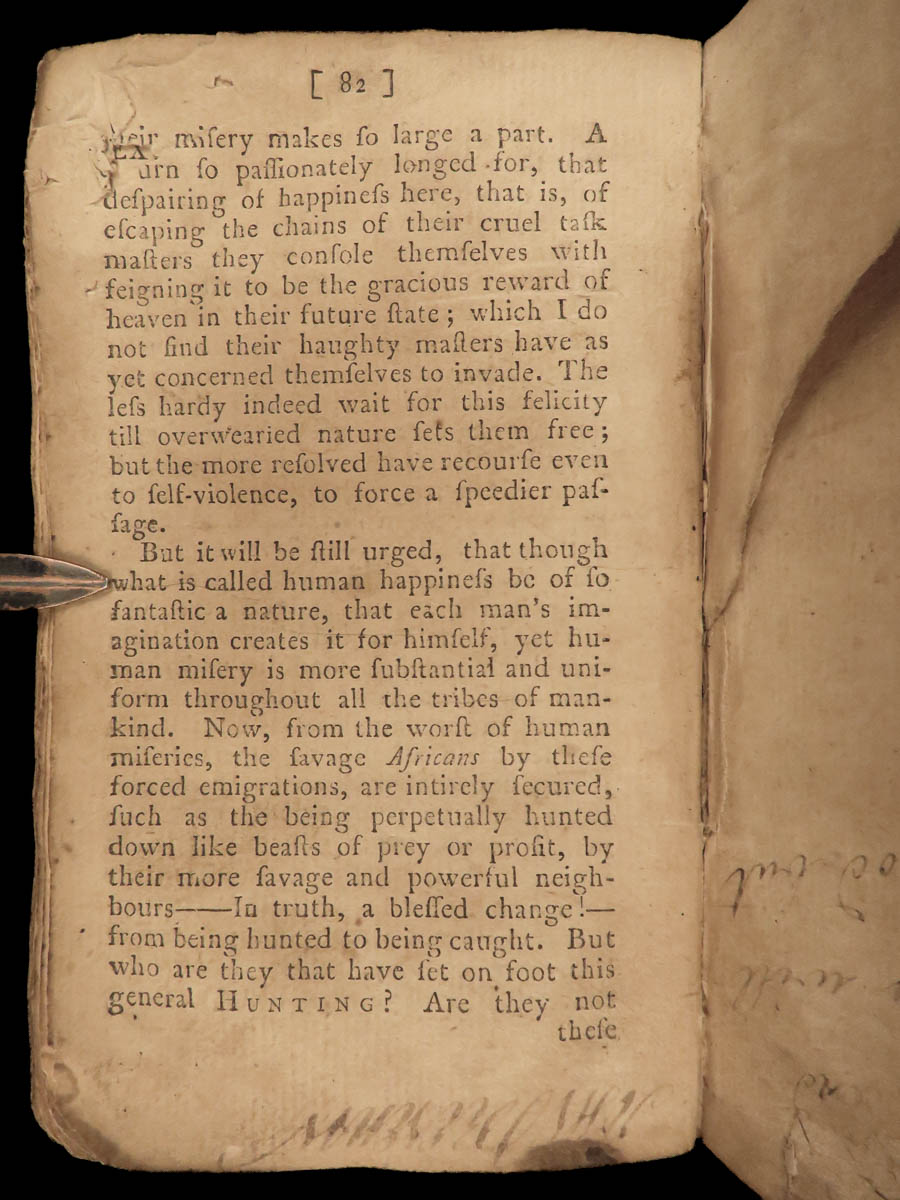 [ 82 ]
their miſery makes ſo large a part. A
urn ſo paſſionately longed for, that
deſpairing of happineſs here, that is, of
eſcaping the chains of their cruel taſk
maſters they conſole themſelves with
feigning it to be the gracious reward of
heaven in their future ſtate; which I do
not find their haughty maſters have as
yet concerned themſelves to invade. The
leſs hardy indeed wait for this felicity
till overwearied nature ſets them free;
but the more reſolved have recourſe even
to ſelf-violence, to force a ſpeedier paſ-
ſage.
But it will be ſtill urged, that though
what is called human happineſs be of ſo
fantaſtic a nature, that each man's im-
agination creates it for himſelf, yet hu-
man miſery is more ſubſtantial and uni-
form throughout all the tribes of man-
kind. Now, from the worſt of human
miſeries, the ſavage Africans by theſe
forced emigrations, are intirely ſecured,
ſuch as the being perpetually hunted
down like beaſts of prey or profit, by
their more ſavage and powerful neigh-
bours——In truth, a bleſſed change!—
from being hunted to being caught. But
who are they that have ſet on foot this
general HUNTING? Are they not
theſe